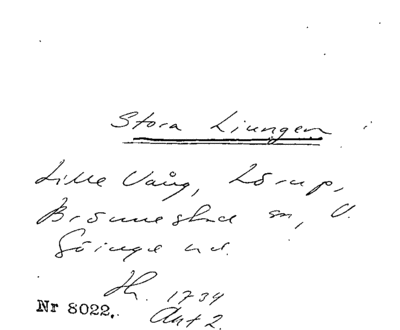 Stora Ljungen i
Lille Vång, Lörup,
Brönnestad sn, V.
Göinge hd.
Hn. 1734
Akt 2.
Nr 8022.